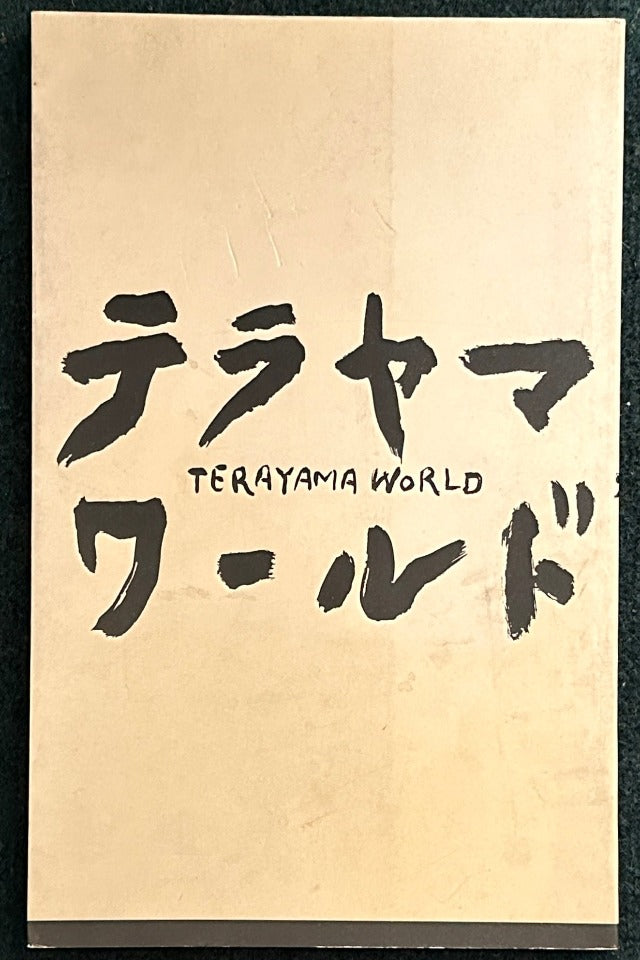 テラヤマ
TERAYAMA WORLD
ワールド